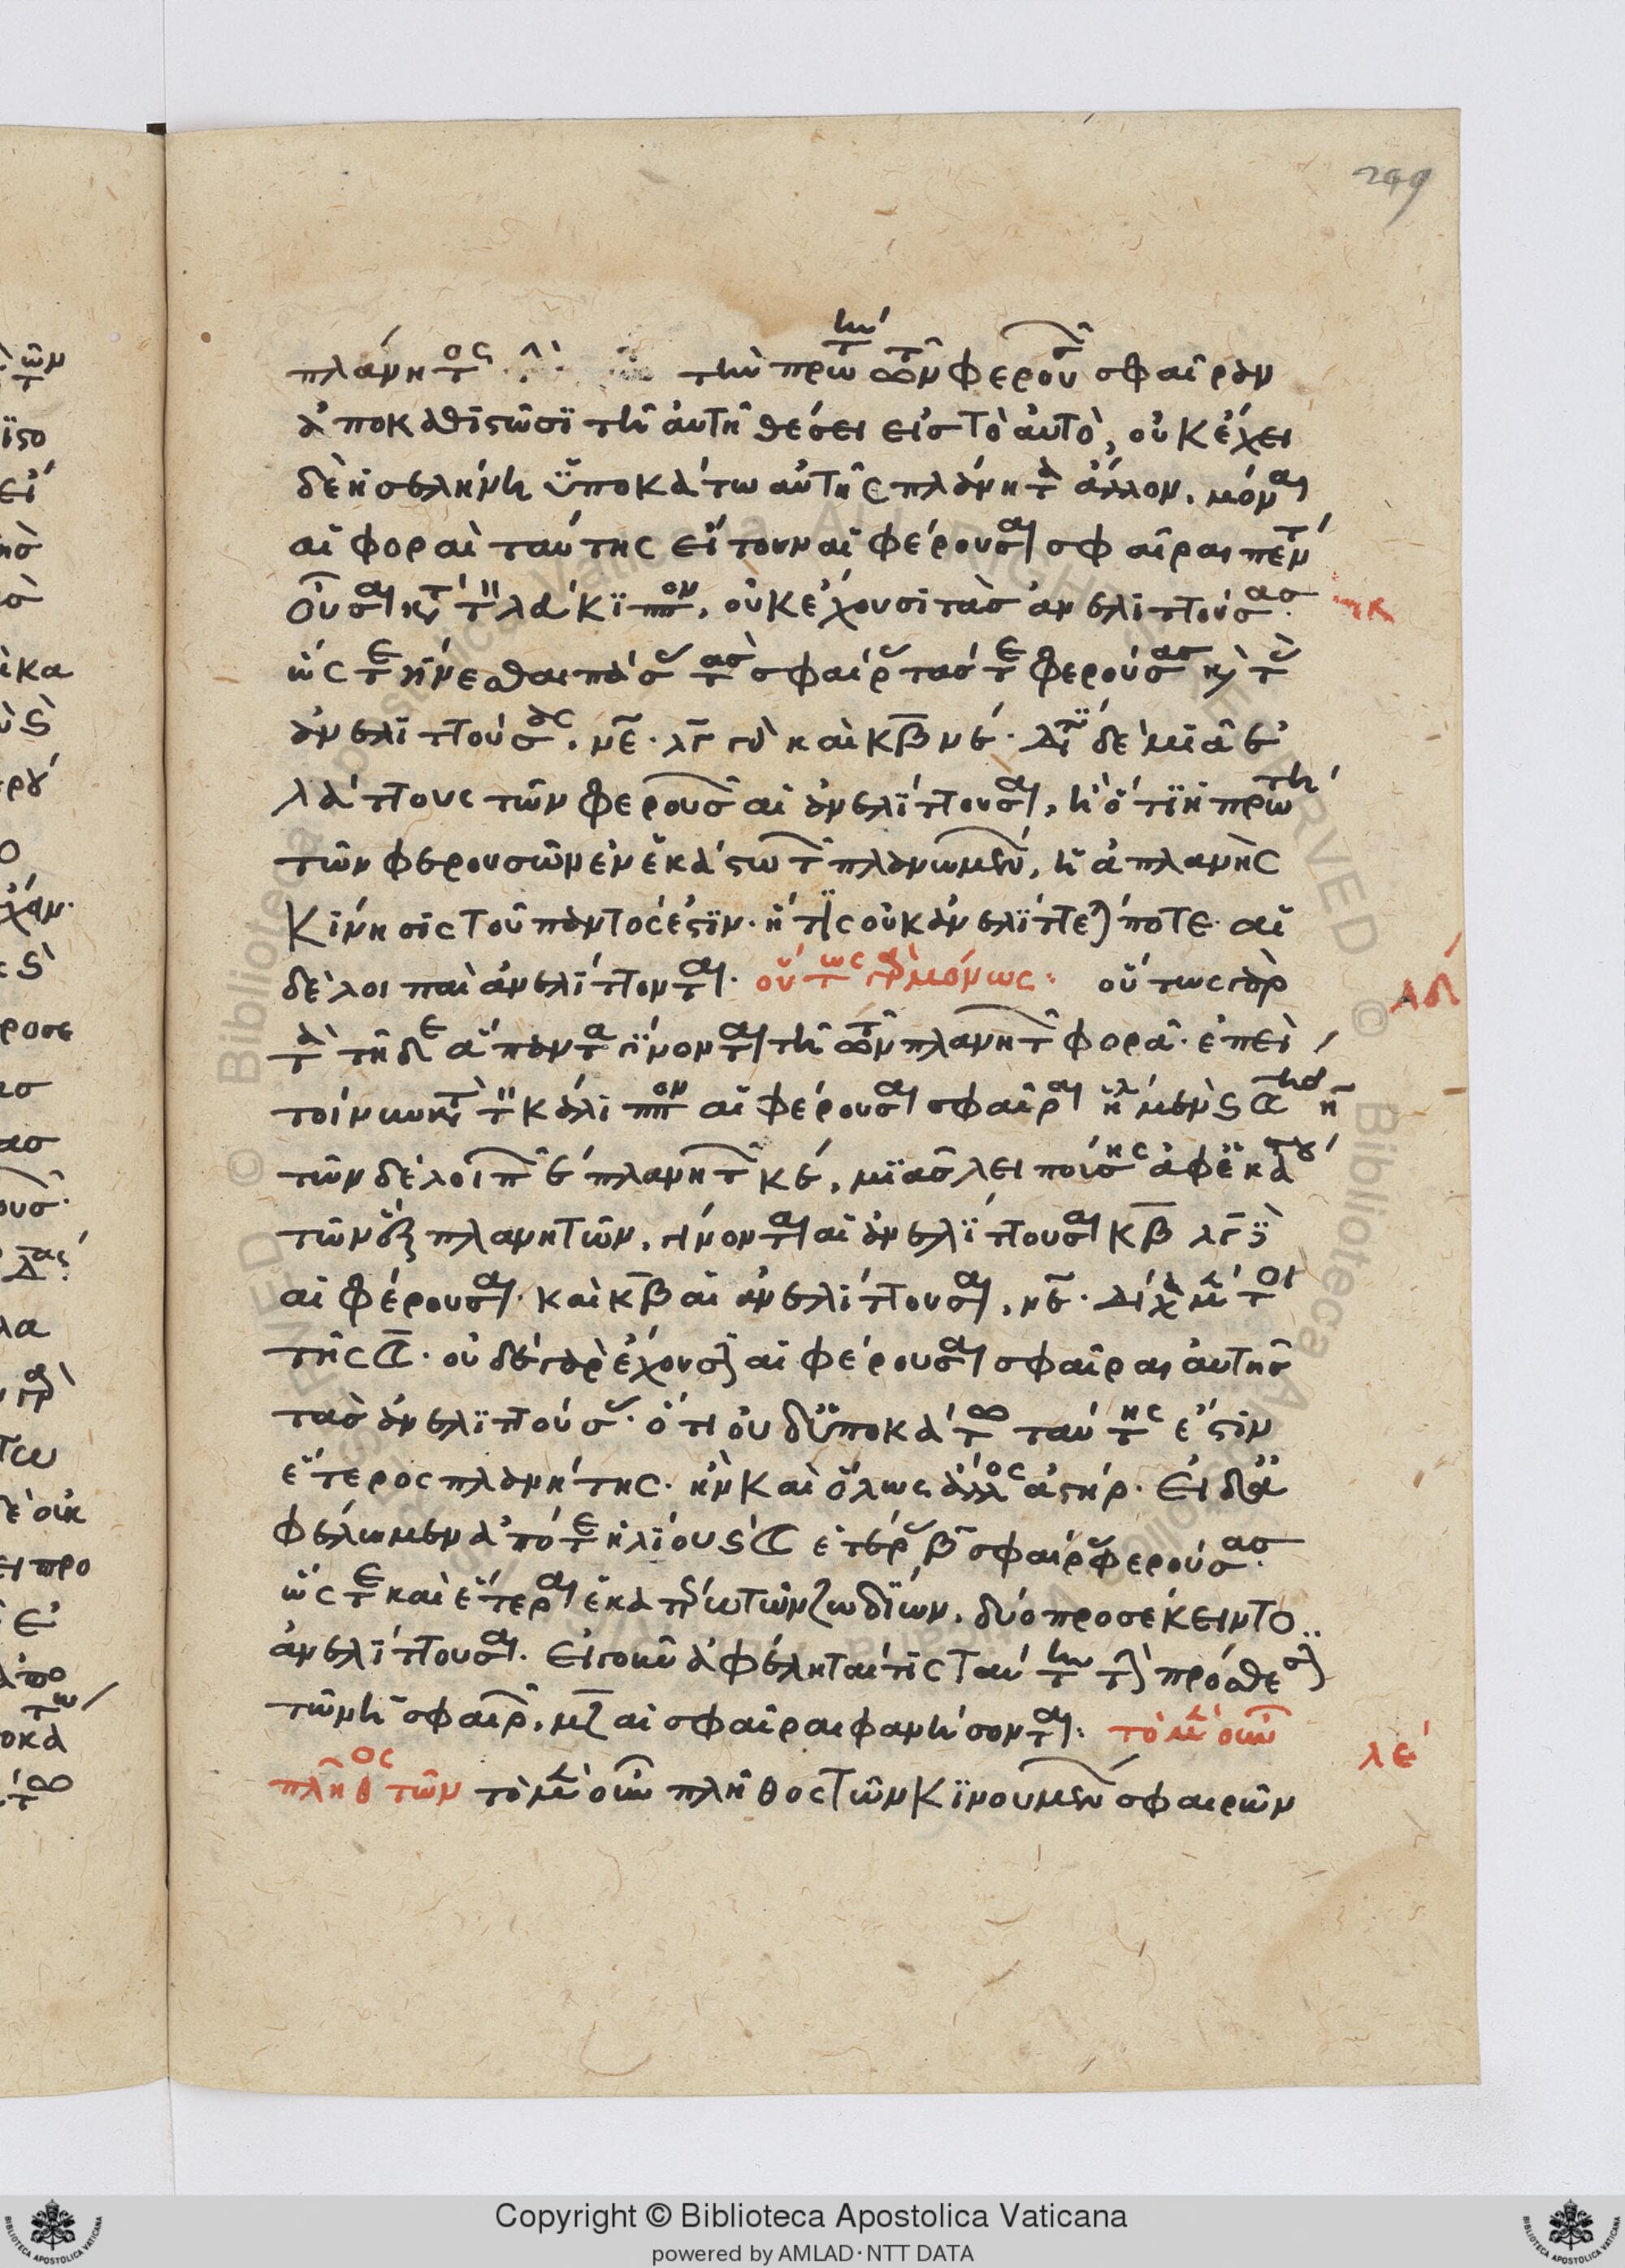 249
πλάνητος τὴν πρώτην τῶν φερουσῶν σφαῖραν
ἀποκαθιστῶσι τῇ αὐτῇ θέσει εἰς τὸ αὐτὸ, οὐκ ἔχει
δὲ ἡ σελήνη ὑποκάτω αὐτῆς πλάνητα ἄλλον. μόναι
αἱ φοραὶ ταύτης εἴτουν αἱ φέρουσαι σφαῖραι πέντε
οὖσαι κατὰ τὸν Κάλιππον, οὐκ ἔχουσι τὰς ἀνελιττούσας.
ὥστε γίνεσθαι πάσας τὰς σφαίρας τάς τε φερούσας καὶ τὰς
ἀνελιττούσας. νε. λγ γὰρ καὶ κβ νε. διατί δὲ μιᾷ ἐ
λάττους τῶν φερουσῶν αἱ ἀνελίττουσαι, ἢ ὅτι ἡ πρώτη
τῶν φερουσῶν ἐν ἑκάστῳ τῶν πλανωμένων, ἡ ἀπλανὴς
κίνησις τοῦ παντός ἐστιν. ἥτις οὐκ ἀνελίττεταί ποτε. αἱ
δὲ λοιπαὶ ἀνελίττονται. οὕτως γὰρ μόνως: οὕτως γὰρ
τὰ τῇδε ἅπαντα γίνονται τῇ τῶν πλανητῶν φορᾷ. ἐπεὶ
τοίνυν κατὰ τὸν Κάλιππον αἱ φέρουσαι σφαῖραι
τῶν δὲ λοιπῶν ε πλανητῶν κε, μιᾶς λειπούσης ἀφ' ἑκάστου
τῶν πλανητῶν, γίνονται αἱ ἀνελίττουσαι κβ λγ
αἱ φέρουσαι. καὶ κβ αἱ ἀνελίττουσαι, νε. δίχα μέντοι
τῆς ☾. οὐδὲ γὰρ ἔχουσιν αἱ φέρουσαι σφαῖραι αὐτῆς
τὰς ἀνελιττούσας. ὅτι οὐδ' ὑποκάτω ταύτης ἐστὶν
ἕτερος πλανήτης. ἢν καὶ ὅλως ἄλλος ἀστήρ. εἰ δ' ἀ
φέλωμεν ἀπό τε ἡλίου καὶ ☾ ἑτέρας β σφαίρας φερούσας.
ὥστε καὶ ἕτεραι ἑκατέρῳ τῶν ζῳδίων. δύο προσέκειντο..
ἀνελίττουσαι. εἰ γοῦν ἀφέληταί τις ταύτην τὴν πρόσθεσιν
τῶν η σφαιρῶν. μζ αἱ σφαῖραι φανήσονται: τὸ μὲν οὖν
πλῆθος τῶν τὸ μὲν οὖν πλῆθος τῶν κινουμένων σφαιρῶν
λδ
λε